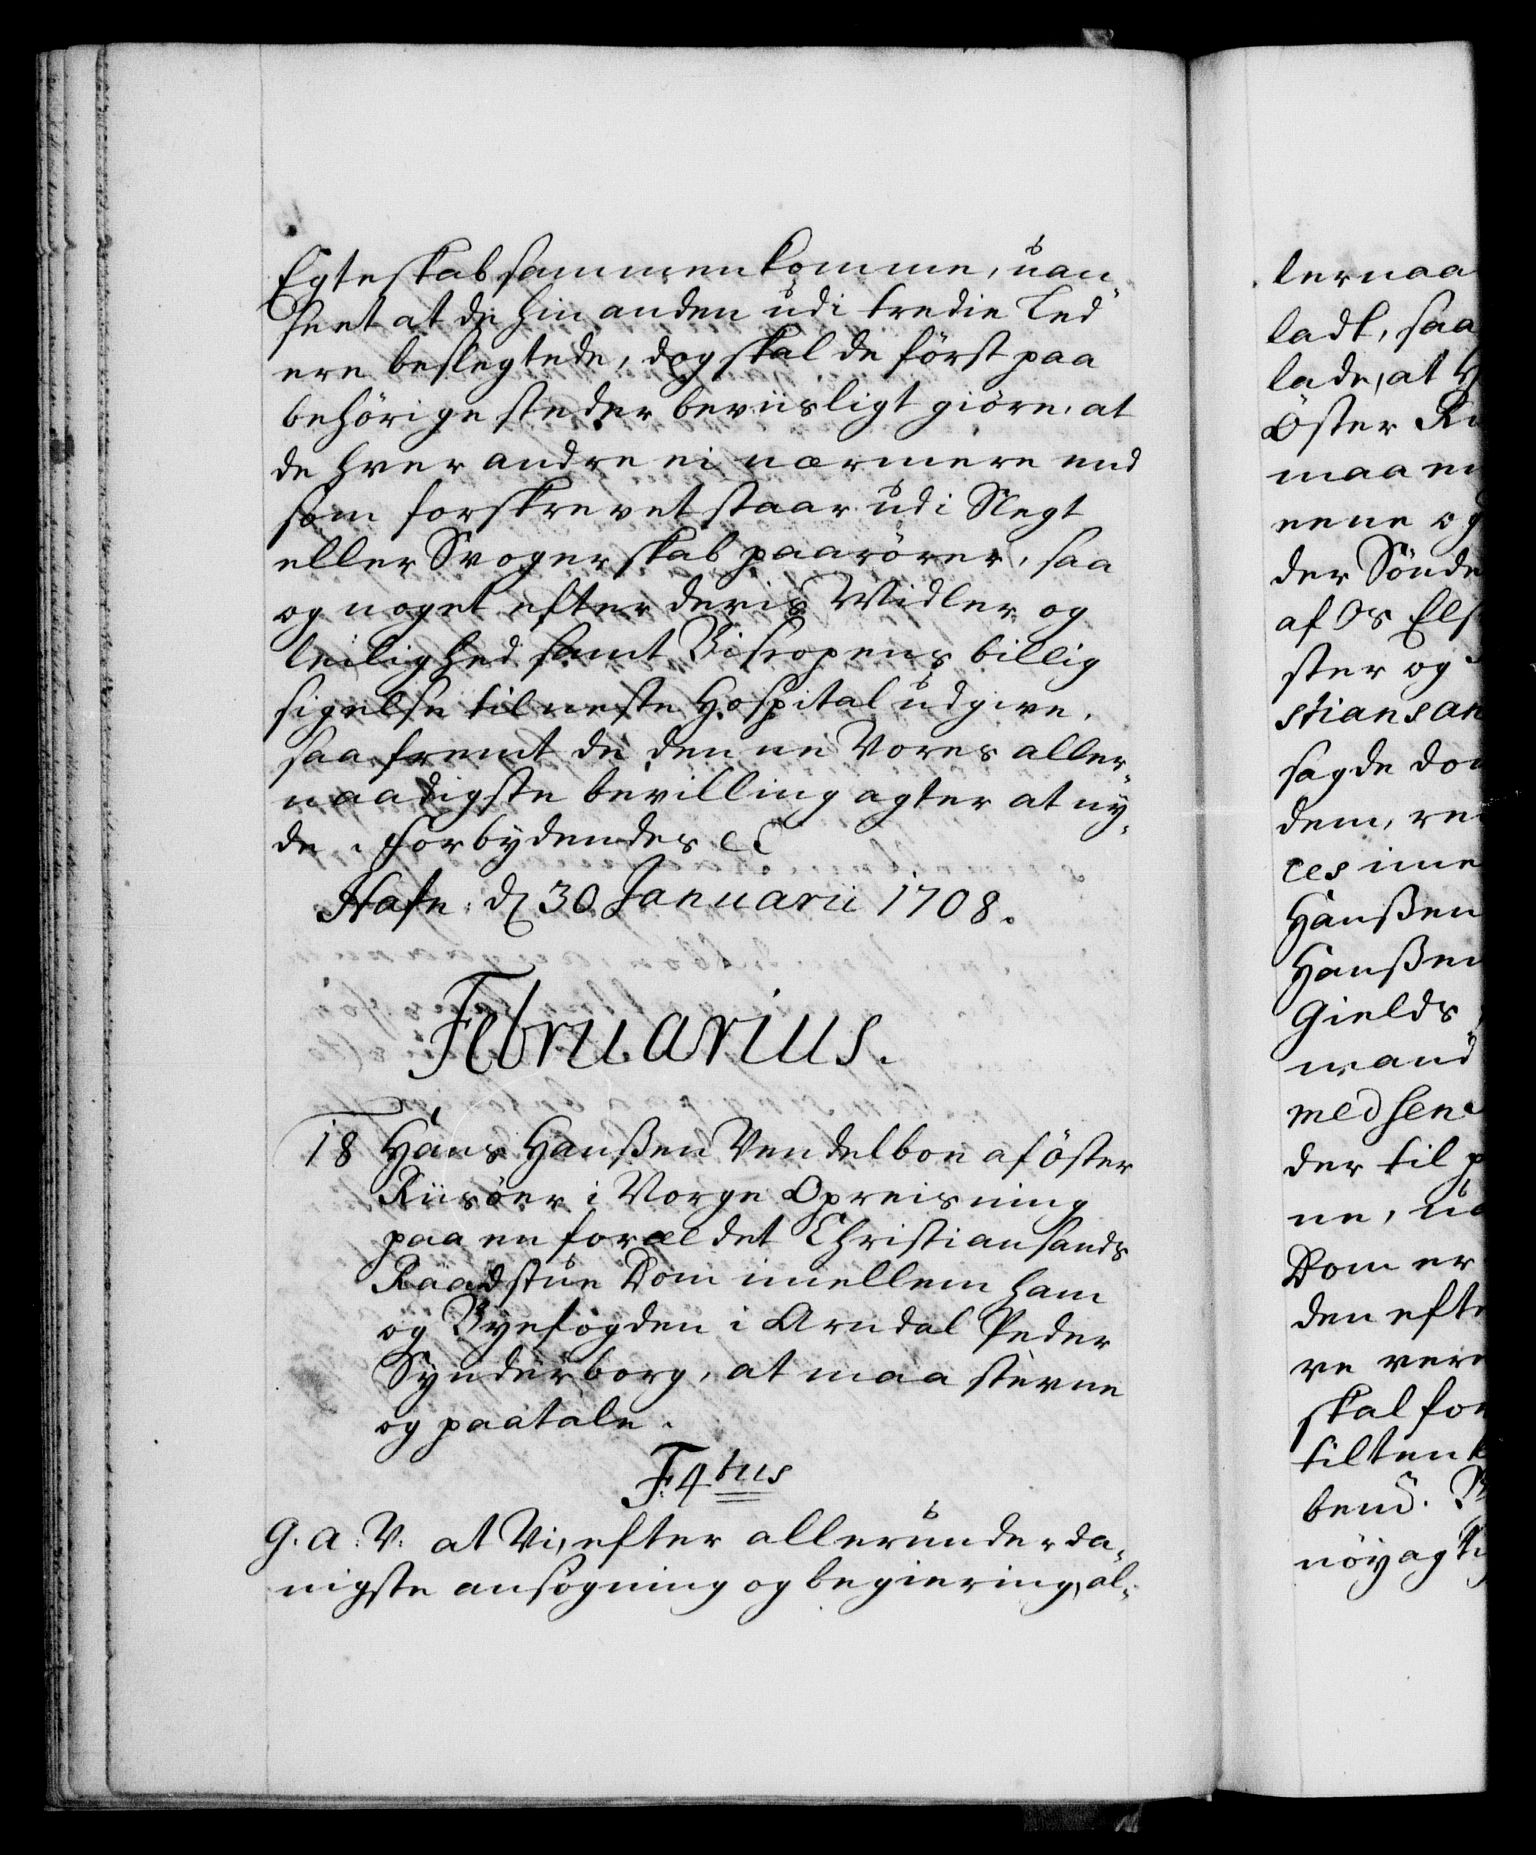 Egteskab sammenkomme, uan-
seet at de hin anden udi tredie Led
ere beslegtede, dog skal de först paa
behörige steder beviisligt giöre, at
de hver andre ei nærmere end
som forskrevet staar udi Slegt
eller Svogerskab paarörer, saa
og noget efter deris Midler og
leilighed samt Bispens billig
sigelse til neste Hospital udgive,
saa fremt de denne Vores aller-
naadigste bevilling agter at ny-
de. Forbydendes &c
Hafn: d 30 Januarii 1708.
Februarius.
18 Hans Hanßen Vendelboe af öster
Riisöer i Norge Opreisning
paa en forældet Christiansands
Raadstue Dom imellem ham
og Byefogden i Arndal Peder
Synderborg, at maa stevne
og paatale.
F: 4tus
G. A: V: at Vi, efter allerunderda-
nigste ansögning og begiering, al-
lernaa
ladt, saa
lade, at H
Öster Ri
maa en
nene og
der Sönde
af Os Els
ster og
stiansan
sagde dom
dem, re
ces ime
Hanßen
Hanßen
Gields
mand
med sen
der til p
ne, u
Dom er
den efte
re vere
skal for
tilten
bend.
nöyagti